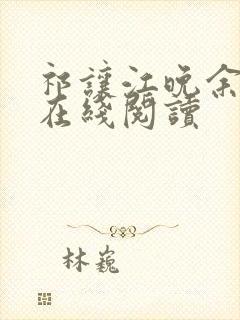 祁讓江晚余
在綫閱讀
林巍